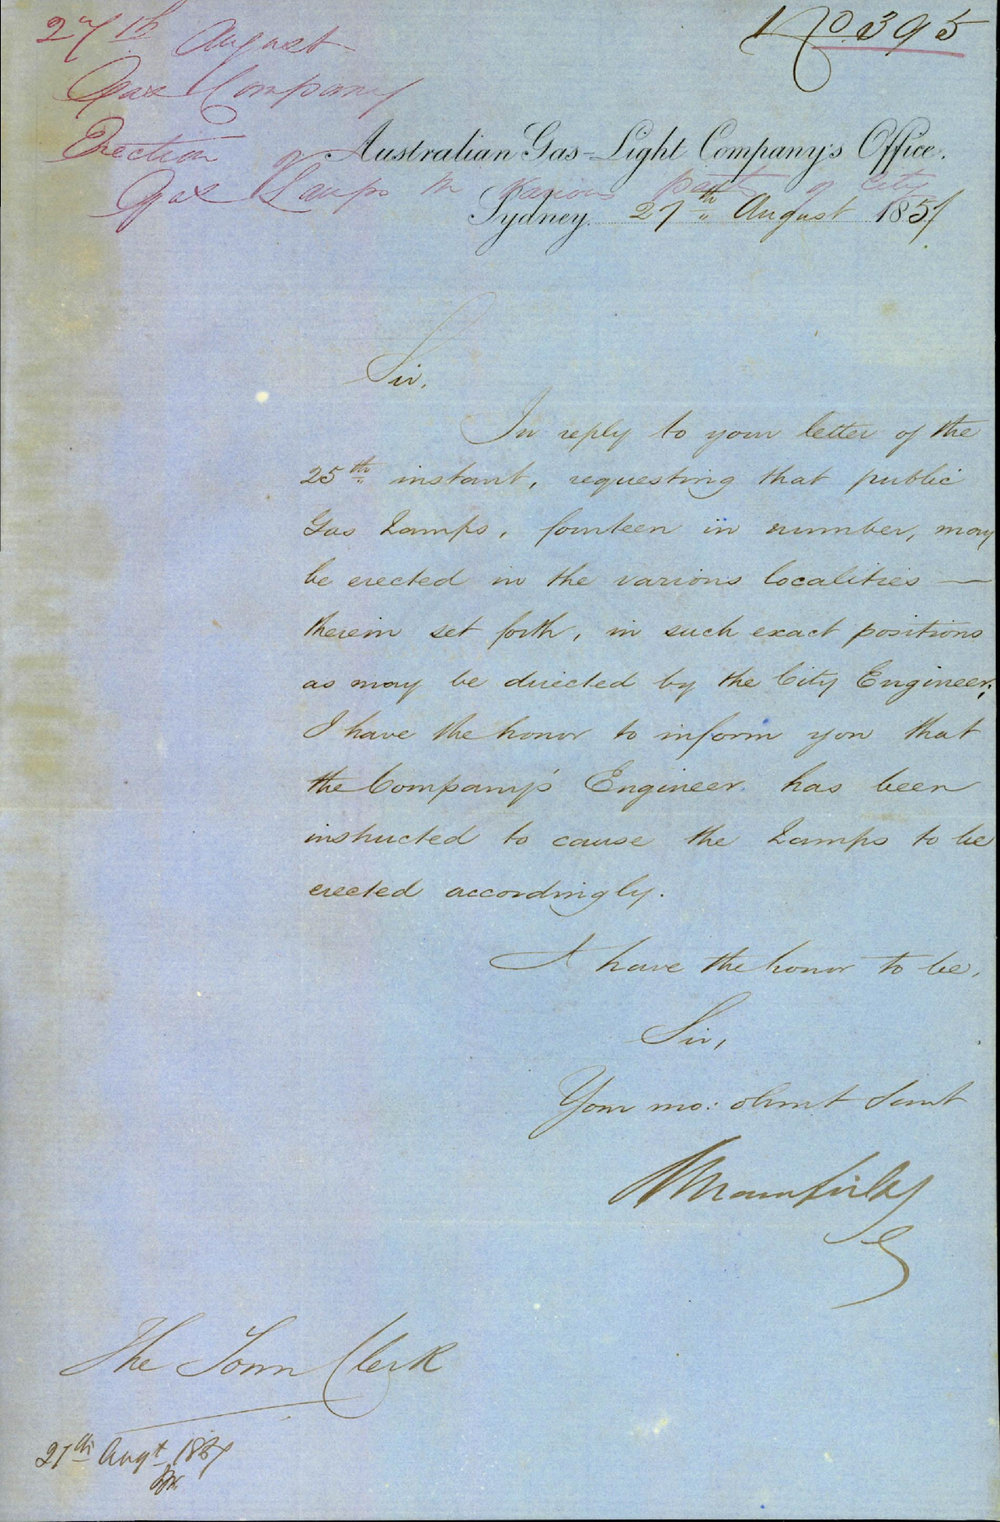 No. 395
27th August
Gas Company
Erection of
Gas Lamps in various parts of City
Australian Gas-Light Company's Office.
Sydney. 27th August 1857
Sir,
In reply to your letter of the
25th instant, requesting that public
Gas Lamps, fourteen in number, may
be erected in the various localities —
therein set forth, in such exact positions
as may be directed by the City Engineer;
I have the honor to inform you that
the Company's Engineer has been
instructed to cause the Lamps to be
erected accordingly.
I have the honor to be,
Sir,
Your mo: obmt Servt
The Town Clerk
27th Augt 1857